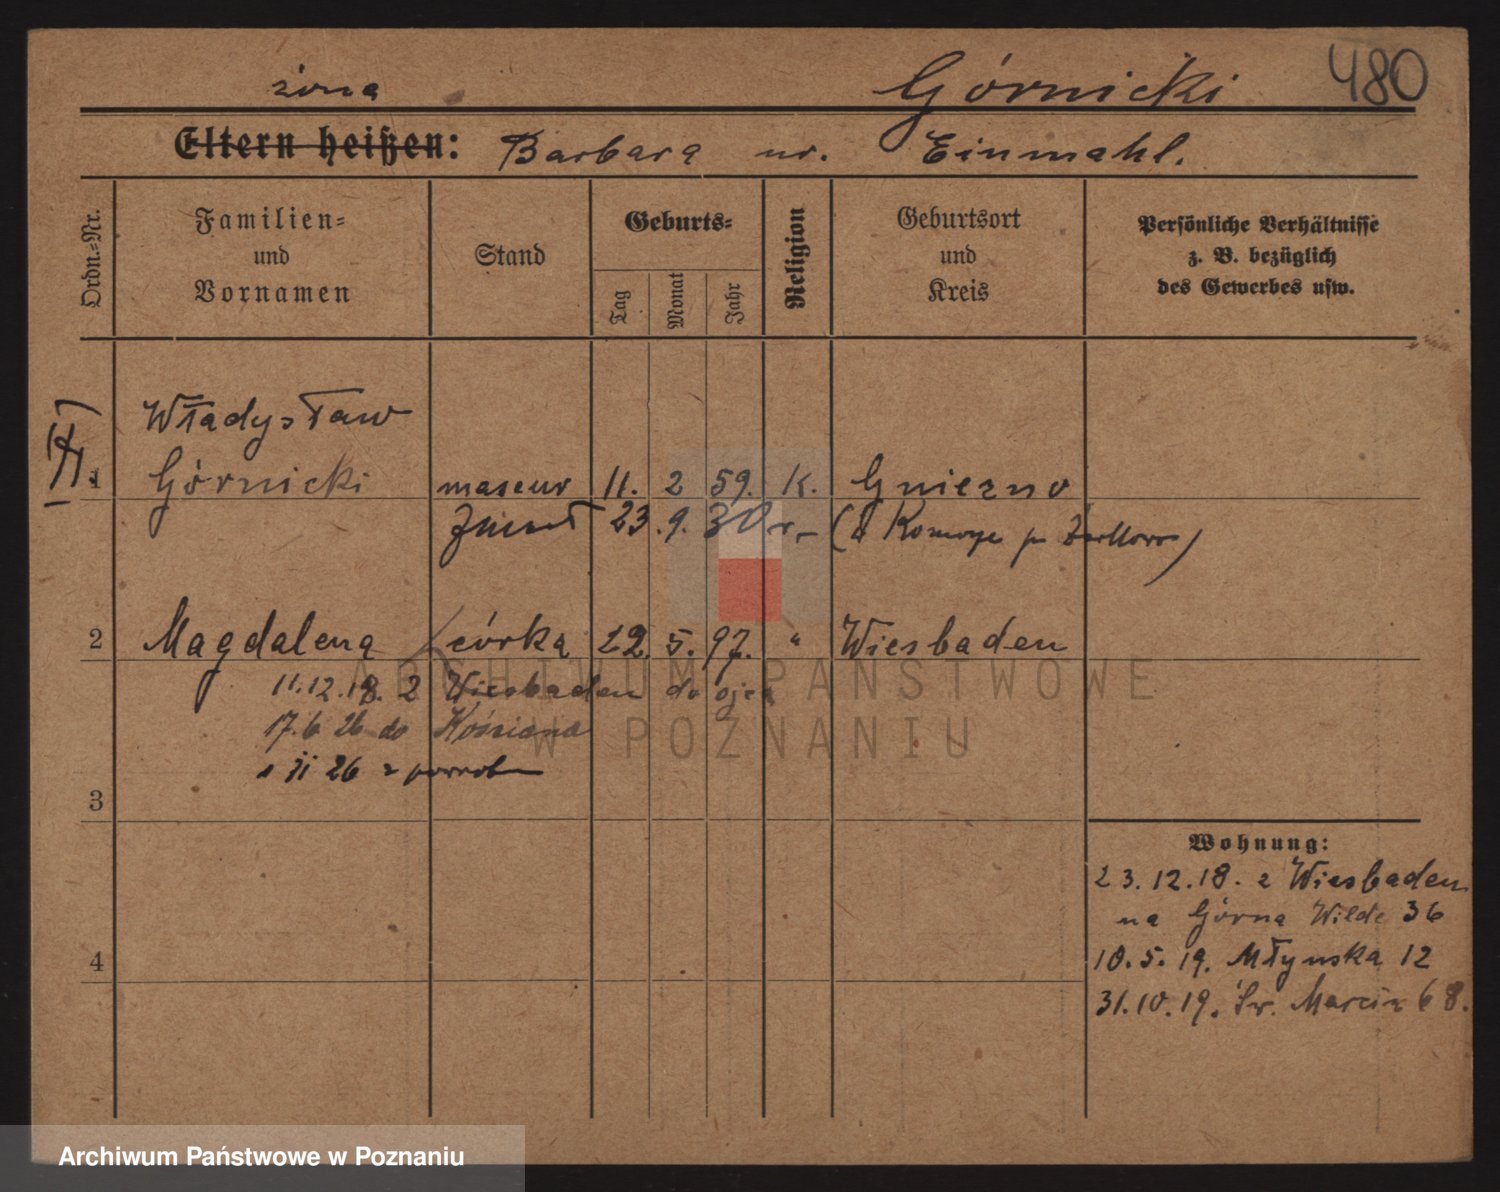 żona Górnicki 480
Eltern heißen: Barbara ur. Einmahl.
Ordn.=Nr. Familien= und Vornamen Stand Geburts= Tag Monat Jahr Religion Geburtsort und Kreis Persönliche Verhältnisse z. B. bezüglich des Gewerbes usw.
Władysław
1 Górnicki maseur 11. 2 59. K. Gniezno
Zmarł 23.9.30 r.
2 Magdalena córka 22. 5. 97. " Wiesbaden
11.12.18. z Wiesbaden do ojca
17.6 26 do Kościana
26 z powrotem
3
Wohnung:
23.12.18. z Wiesbaden
na Górna Wilde 36
4
10.5.19. Młyńska 12
31.10.19. Św. Marcin 68.
ARCHIWUM PAŃSTWOWE
W POZNANIU
Archiwum Państwowe w Poznaniu